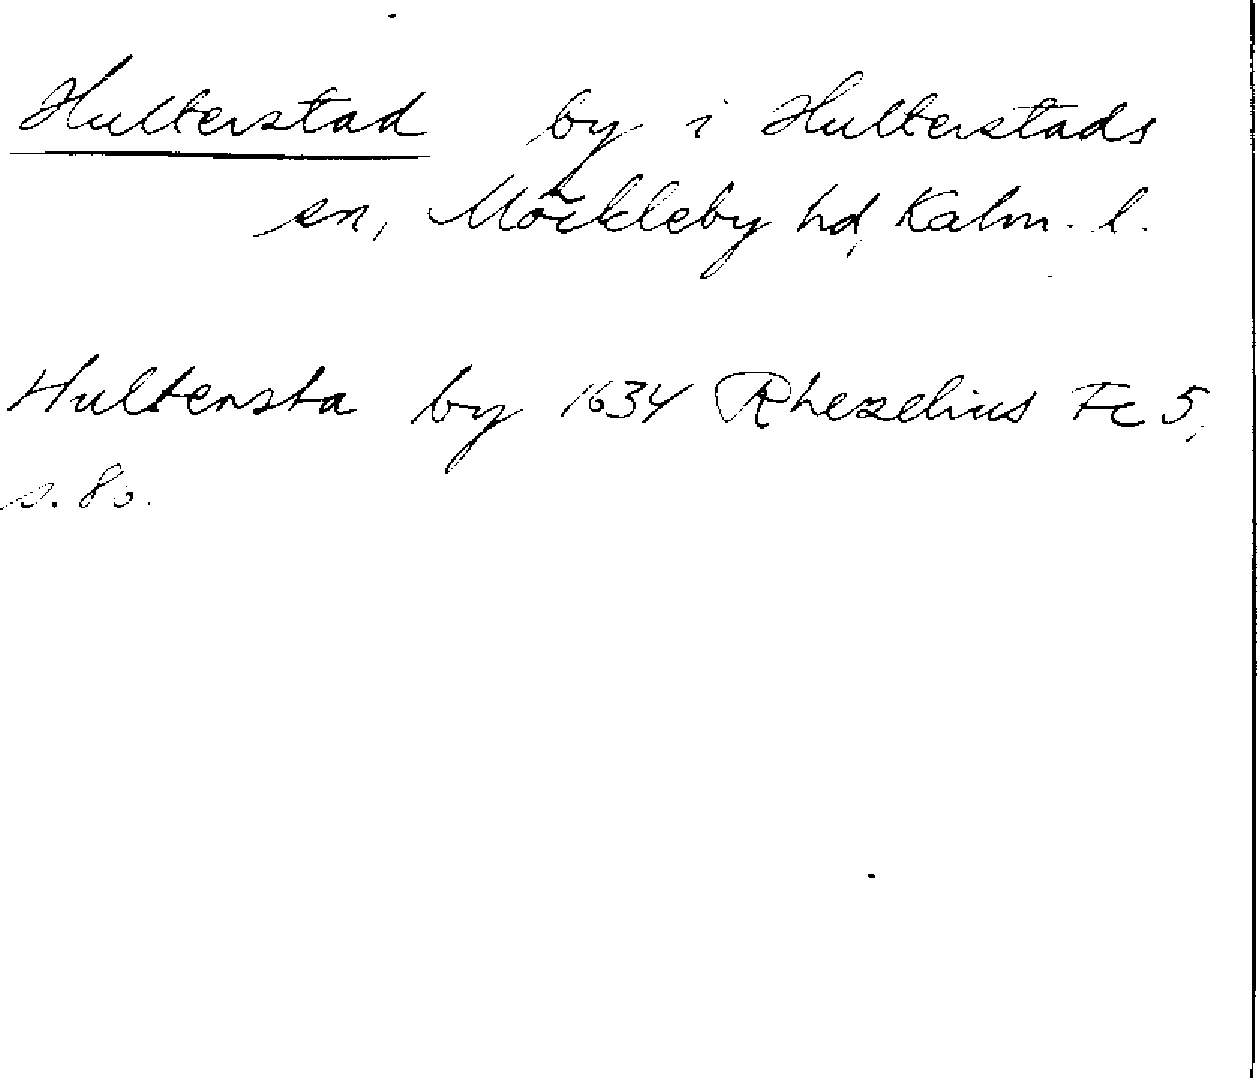 Hulterstad by i Hulterstads
sn, Möckleby hd, Kalm. l.
Hultersta by 1634 Rhezelius Fc 5,
s. 80.